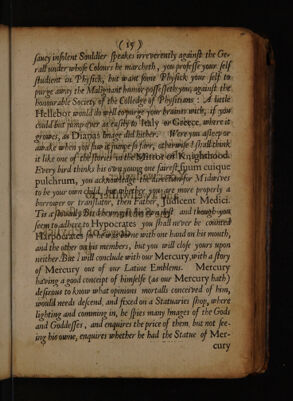 (15)
saucy insolent Souldier speaks irreverently against the Ge-
rall under whose Colours he marcheth, you professe your self
student in Physick, but want some Physick your self to
purge away the Malignant humor possesseth you, against the
honourable Society of the Colledge of Physitians: A little
Hellebor would do well to purge your brains with, if you
could but jump over as easily to Italy or Greece, where it
growes, as Dianas Image did hither. Were you asleep or
awake when you saw it jumpe so farr, otherwise I shall think
it like one of the stories in the Mirror of Knighthood.
Every bird thinks his own young one fairest, suum cuique
pulchrum, you acknowledge the directory for Midwives
to be your own child, but whether you are more properly a
borrower or translator, then Father, Judicent Medici.
Tis a
seem to adhere to Hypocrates you shall never be counted
Harpocrates for he was borne with one hand on his mouth,
and the other on his members, but you will close yours upon
neither. But I will conclude with our Mercury, with a story
of Mercury out of our Latine Emblems. Mercury
having a good conceipt of himselfe (as our Mercury hath)
desirous to know what opinions mortalls conceived of him,
would needs descend, and fixed on a Statuaries shop, where
lighting and comming in, he spies many Images of the Gods
and Goddesses, and enquires the price of them, but not see-
ing his owne, enquires whether he had the Statue of Mer-
cury